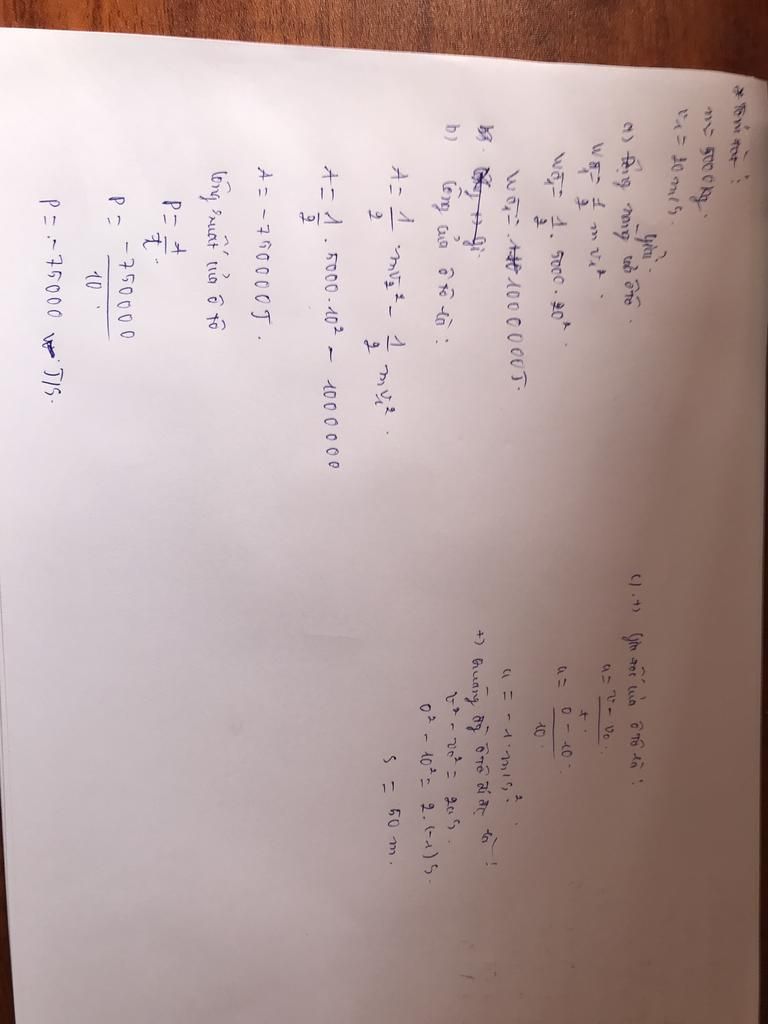 * Tóm tắt:
m = 5000 kg.
v₁ = 20 m/s.
Giải:
a) Động năng của ôtô.
Wđ₁ = 1/2 m v₁².
Wđ₁ = 1/2 . 5000 . 20².
Wđ₁ = 1000000J.
b) Công của ô tô là:
A = 1/2 mv₂² - 1/2 mv₁².
A = 1/2 . 5000 . 10² - 1000000
A = -750000J.
Công suất của ô tô
P = A/t.
P = -750000/10.
P = -75000 J/s.
c) +) Gia tốc của ô tô là:
a = v - v₀/t.
a = 0 - 10/10.
a = -1 m/s².
+) Quãng đg ô tô đi đc là:
v² - v₀² = 2as.
0² - 10² = 2.(-1)s.
s = 50 m.